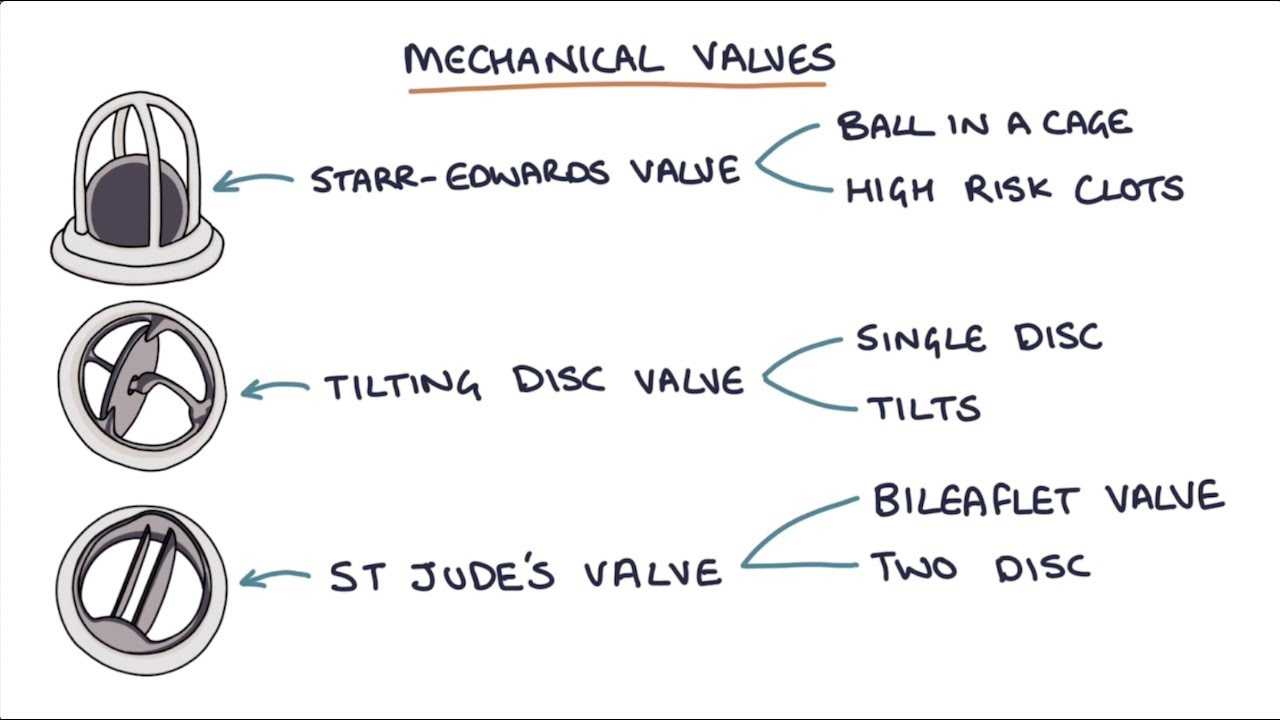 MECHANICAL VALVES
STARR-EDWARDS VALVE
BALL IN A CAGE
HIGH RISK CLOTS
TILTING DISC VALVE
SINGLE DISC
TILTS
ST JUDE'S VALVE
BILEAFLET VALVE
TWO DISC